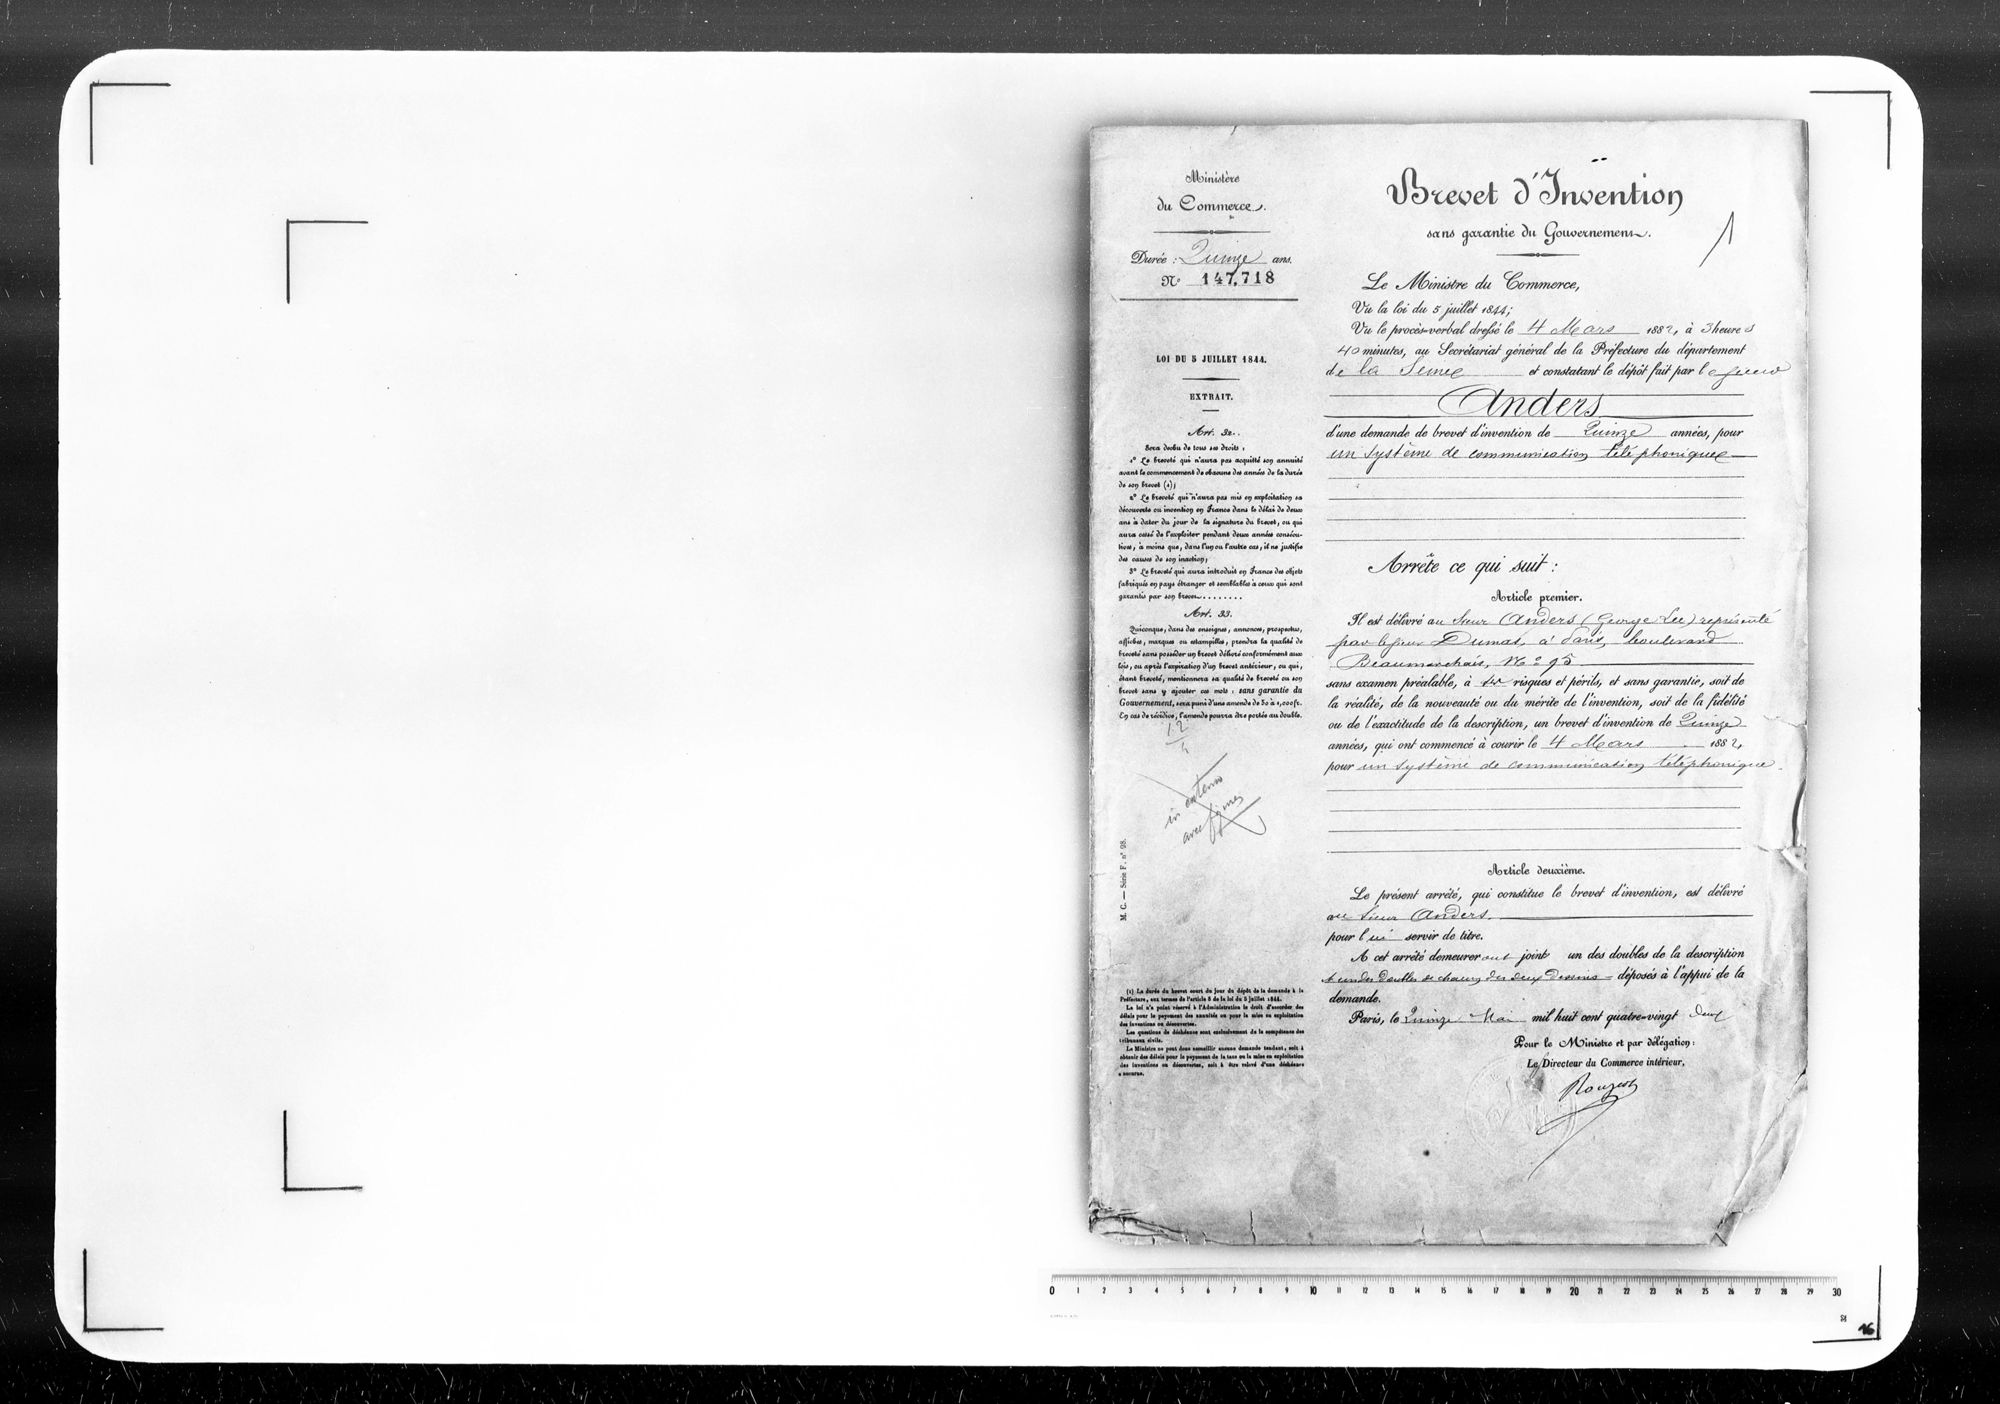 Ministère
du Commerce.
Durée : Quinze ans.
N° 147,718
LOI DU 5 JUILLET 1844.
EXTRAIT.
Art. 32.
Sera déchu de tous ses droits :
1° Le breveté qui n'aura pas acquitté son annuité
avant le commencement de chacune des années de la durée
de son brevet (1);
2° Le breveté qui n'aura pas mis en exploitation sa
découverte ou invention en France dans le délai de deux
ans à dater du jour de la signature du brevet, ou qui
aura cessé de l'exploiter pendant deux années consécu-
tives, à moins que, dans l'un ou l'autre cas, il ne justifie
des causes de son inaction;
3° Le breveté qui aura introduit en France des objets
fabriqués en pays étranger et semblables à ceux qui sont
garantis par son brevet........
Art. 33.
Quiconque, dans des enseignes, annonces, prospectus,
affiches, marques ou estampilles, prendra la qualité de
breveté sans posséder un brevet délivré conformément aux
lois, ou après l'expiration d'un brevet antérieur, ou qui,
étant breveté, mentionnera sa qualité de breveté ou son
brevet sans y ajouter ces mots : sans garantie du
Gouvernement, sera puni d'une amende de 50 à 1,000 fr.
En cas de récidive, l'amende pourra être portée au double.
12
in extenso
avec figures
M. C. — Série F. n° 98.
(1) La durée du brevet court du jour du dépôt de la demande à la
Préfecture, aux termes de l'article 8 de la loi du 5 juillet 1844.
La loi n'a point réservé à l'Administration le droit d'accorder des
délais pour le payement des annuités ou pour la mise en exploitation
des inventions ou découvertes.
Les questions de déchéance sont exclusivement de la compétence des
tribunaux civils.
Le Ministre ne peut donc accueillir aucune demande tendant, soit à
obtenir des délais pour le payement de la taxe ou la mise en exploitation
des inventions ou découvertes, soit à être relevé d'une déchéance
encourue.
Brevet d'Invention
sans garantie du Gouvernement.
1
Le Ministre du Commerce,
Vu la loi du 5 juillet 1844;
Vu le procès-verbal dressé le 4 Mars 1882, à 3 heures
40 minutes, au Secrétariat général de la Préfecture du département
de la Seine et constatant le dépôt fait par le sieur
Anders
d'une demande de brevet d'invention de Quinze années, pour
un système de communication téléphonique
Arrête ce qui suit :
Article premier.
Il est délivré au Sieur Anders (George Lee) représenté
par le sieur Dumas, à Paris, boulevard
Beaumarchais, N° 95
sans examen préalable, à ses risques et périls, et sans garantie, soit de
la réalité, de la nouveauté ou du mérite de l'invention, soit de la fidélité
ou de l'exactitude de la description, un brevet d'invention de Quinze
années, qui ont commencé à courir le 4 Mars 1882,
pour un système de communication téléphonique.
Article deuxième.
Le présent arrêté, qui constitue le brevet d'invention, est délivré
au Sieur Anders.
pour lui servir de titre.
A cet arrêté demeureront joints un des doubles de la description
et un des doubles de chacun des deux dessins déposés à l'appui de la
demande.
Paris, le Quinze Mai mil huit cent quatre-vingt deux
Pour le Ministre et par délégation :
Le Directeur du Commerce intérieur,
0 1 2 3 4 5 6 7 8 9 10 11 12 13 14 15 16 17 18 19 20 21 22 23 24 25 26 27 28 29 30
16